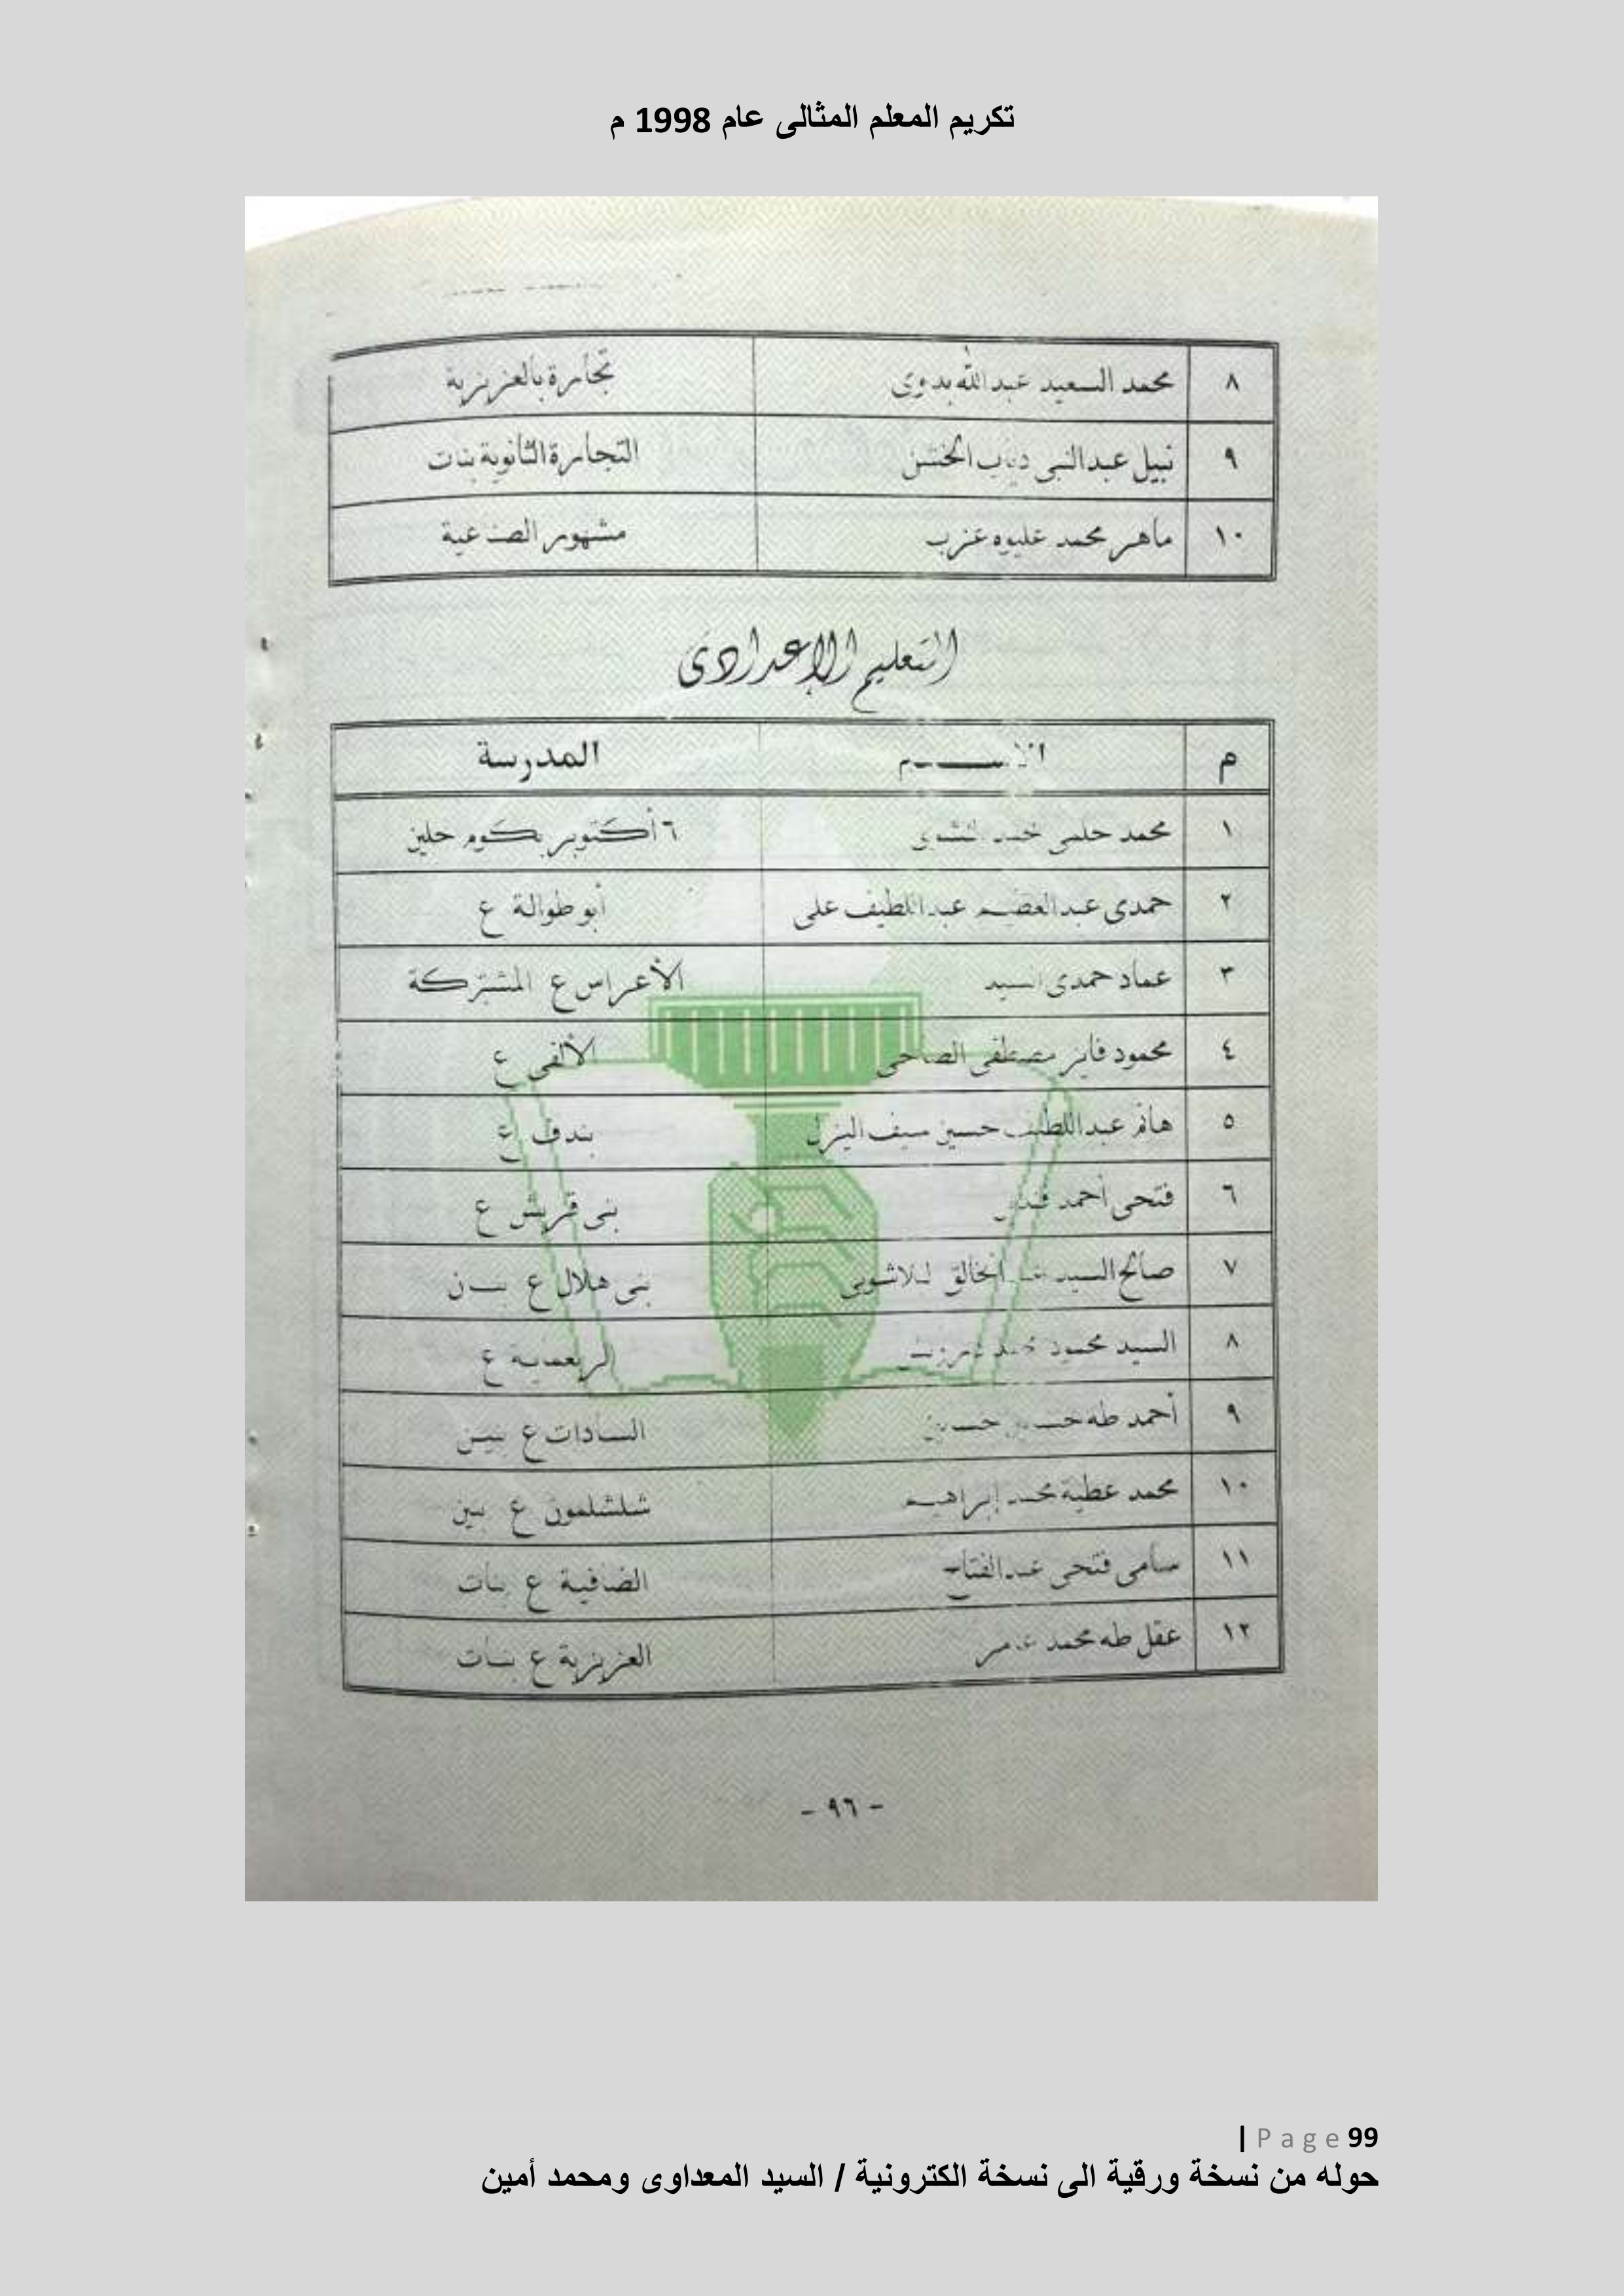 تكريم المعلم المثالى عام 1998 م
٨ محمد السعيد عبد الله بدوى تجارة بالعزيزية
٩ نبيل عبد النبى دياب التجارة الثانوية بنات
١٠ ماهر محمد عليوه عزب مشهور الصناعية
التعليم الإعدادى
م الاســـم المدرسة
١ محمد حلمى محمد ٦ أكتوبر بكوم حلين
٢ حمدى عبد العظيم عبد اللطيف على أبو طوالة ع
٣ عماد حمدى السيد الأعراس ع المشتركة
٤ محمود فايز مصطفى الصاحى الألفى ع
٥ هانم عبد اللطيف حسين سيف اليزل بندف ع
٦ فتحى أحمد بنى قريش ع
٧ صالح السيد عبد الخالق بنى هلال ع
٨ السيد محمود محمد الربعماية ع
٩ أحمد طه حسين السادات ع بنين
١٠ محمد عطية محمد إبراهيم شلشلمون ع بنين
١١ سامى فتحى عبد الفتاح الصافية ع بنات
١٢ عقل طه محمد عامر العزيزية ع بنات
- ٩٦ -
| Page 99
حوله من نسخة ورقية الى نسخة الكترونية / السيد المعداوى ومحمد أمين